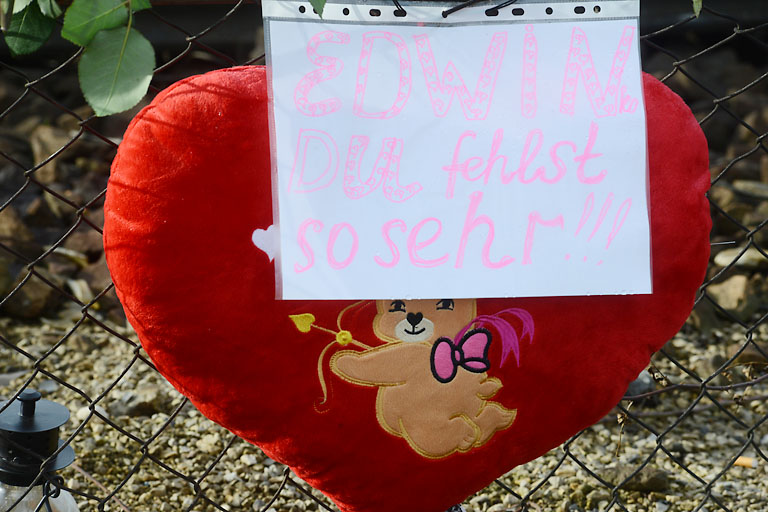 EDWINko
DU fehlst
so sehr!!!